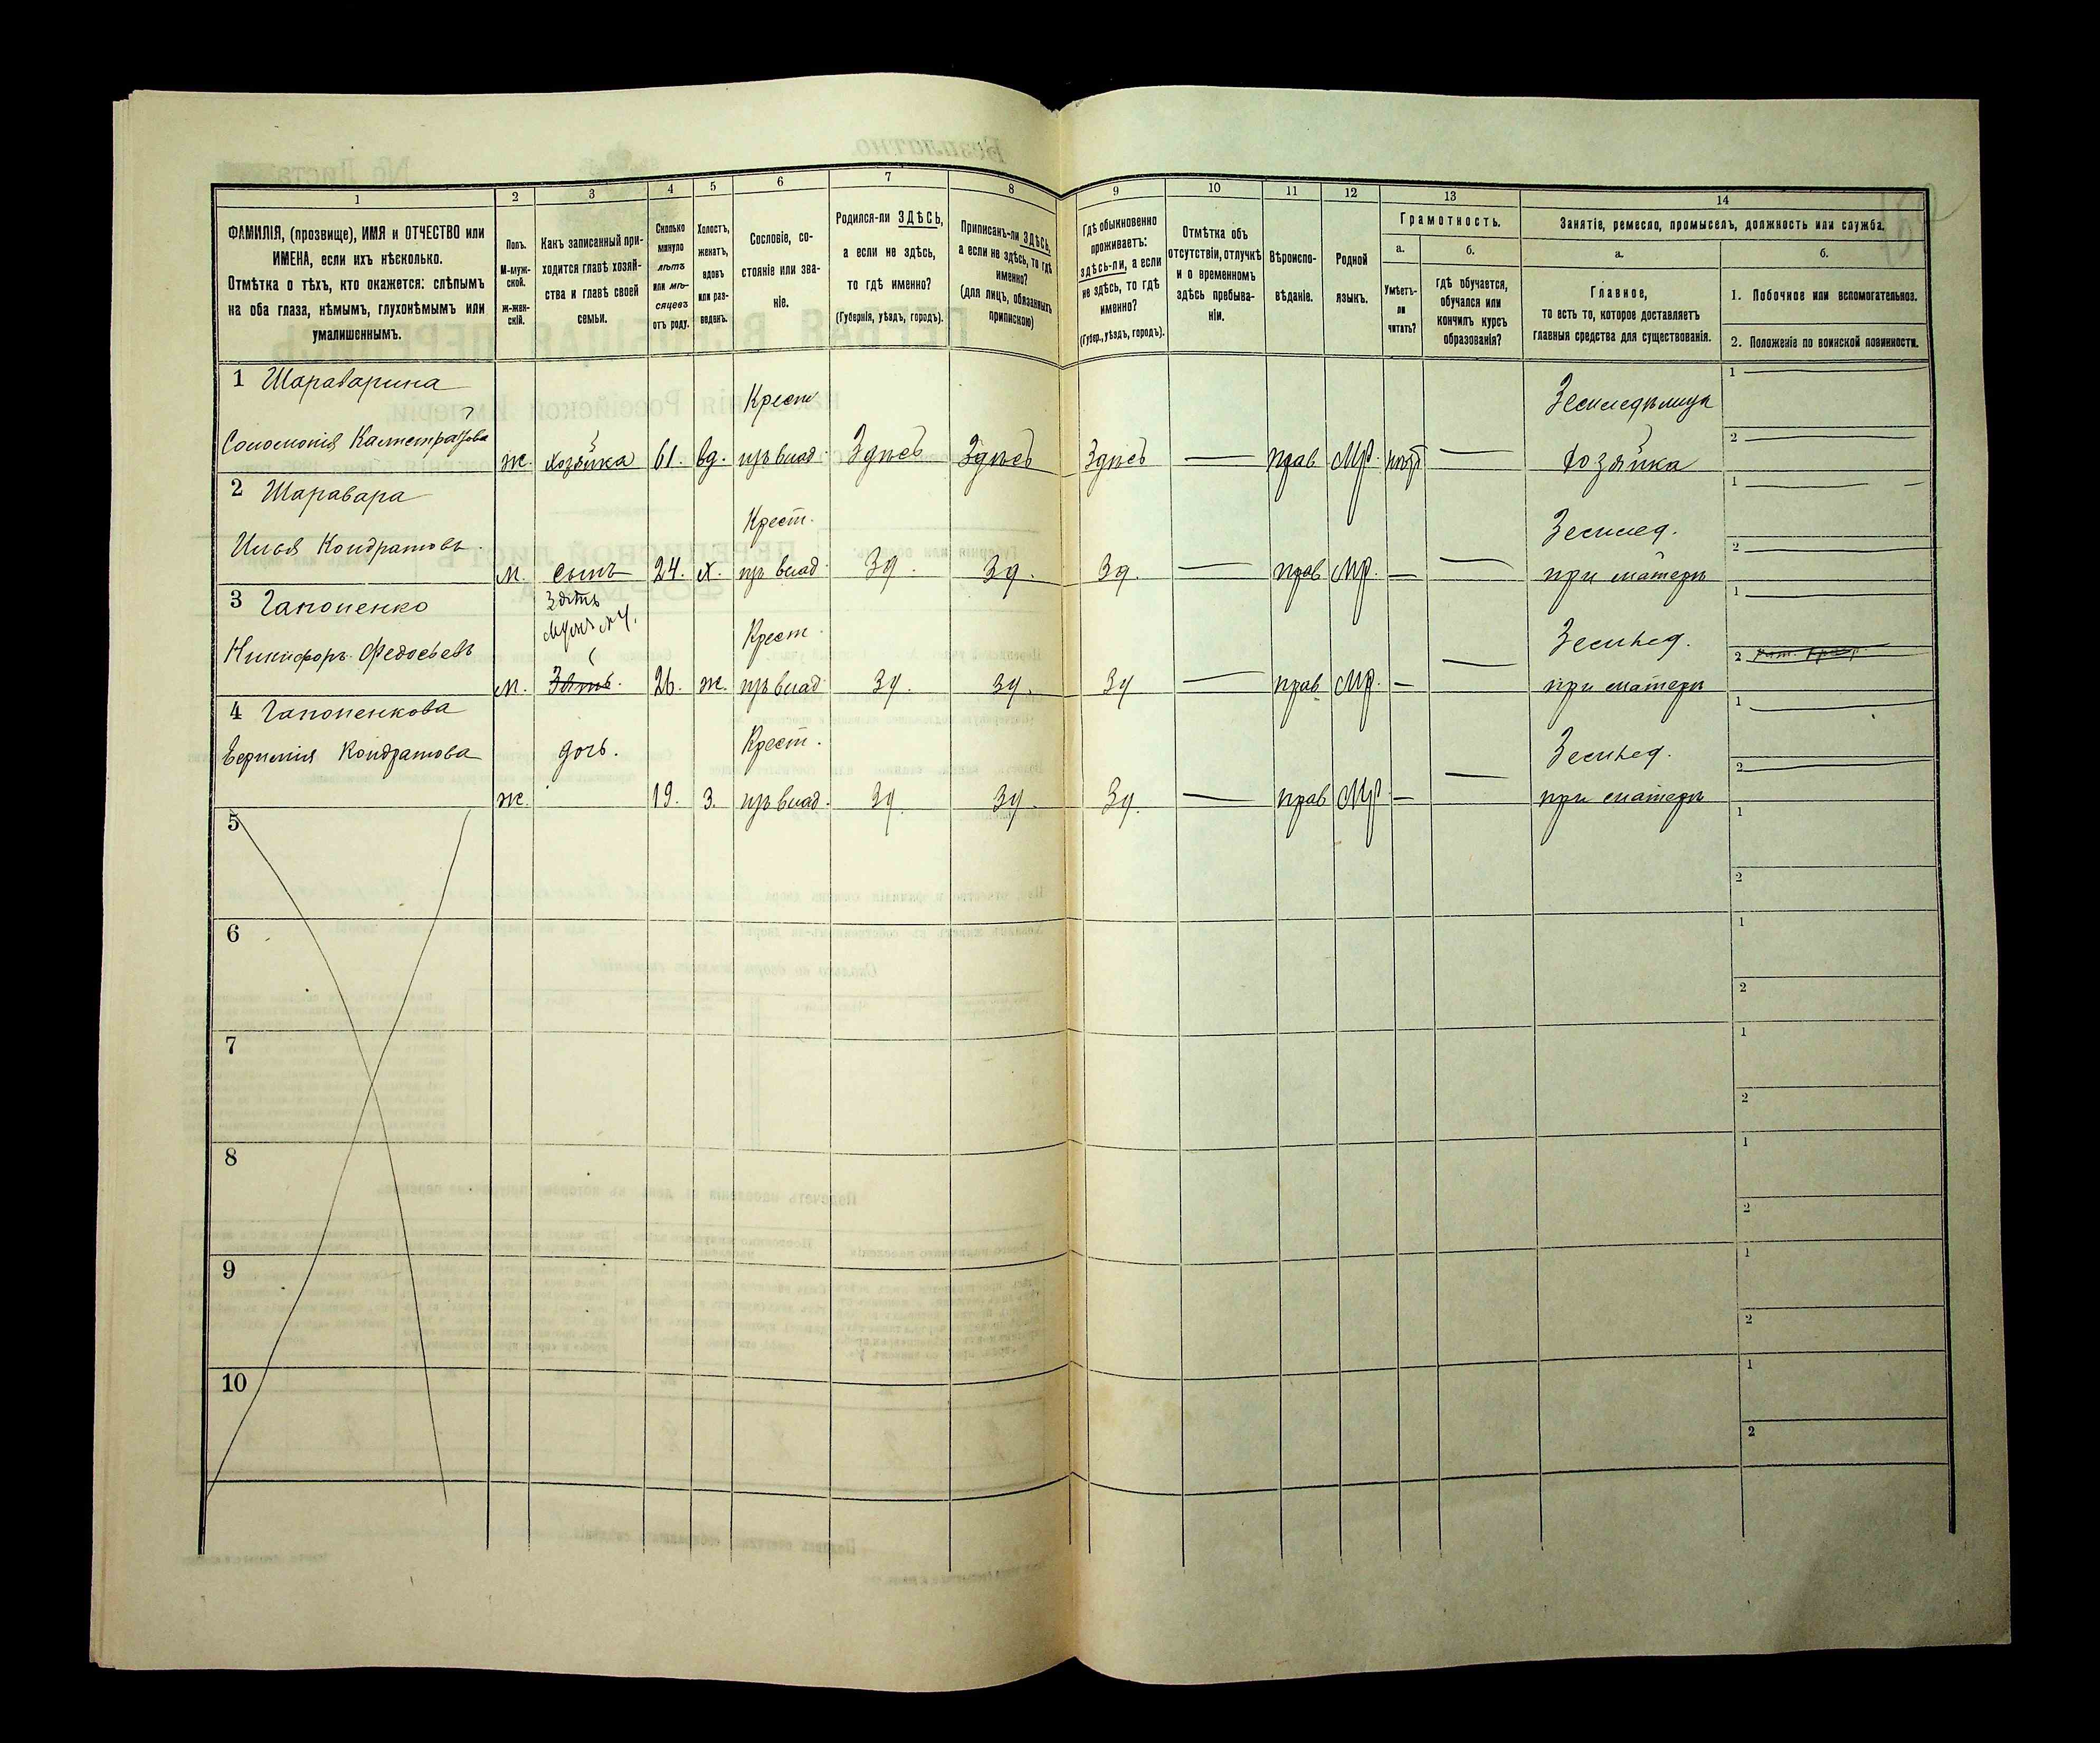 1 2 3 4 5 6 7 8 9 10 11 12 13 14
ФАМИЛІЯ, (прозвище), ИМЯ и ОТЧЕСТВО или
ИМЕНА, если ихъ нѣсколько.
Отмѣтка о тѣхъ, кто окажется: слѣпымъ
на оба глаза, нѣмымъ, глухонѣмымъ или
умалишеннымъ.
Полъ.
М-муж-
ской.
Ж-жен-
скій.
Какъ записанный при-
ходится главѣ хозяй-
ства и главѣ своей
семьи.
Сколько
минуло
лѣтъ
или мѣ-
сяцевъ
отъ роду.
Холостъ,
женатъ,
вдовъ
или раз-
веденъ.
Сословіе, со-
стояніе или зва-
ніе.
Родился-ли ЗДѢСЬ,
а если не здѣсь,
то гдѣ именно?
(Губернія, уѣздъ, городъ).
Приписанъ-ли ЗДѢСЬ,
а если не здѣсь, то гдѣ
именно?
(для лицъ, обязанныхъ
припискою)
Гдѣ обыкновенно
проживаетъ:
здѣсь-ли, а если
не здѣсь, то гдѣ
именно?
(Губер., уѣздъ, городъ).
Отмѣтка объ
отсутствіи, отлучкѣ
и о временномъ
здѣсь пребыва-
ніи.
Вѣроиспо-
вѣданіе.
Родной
языкъ.
Грамотность.
а.
Умѣетъ-
ли
читать?
б.
гдѣ обучается,
обучался или
кончилъ курсъ
образованія?
Занятіе, ремесло, промыселъ, должность или служба.
а.
Главное,
то есть то, которое доставляетъ
главныя средства для существованія.
б.
1. Побочное или вспомогательное.
2. Положеніе по воинской повинности.
1 Шараварина Крест Земледѣлица 1
Соломонія Калистратова ж. хозяйка 61. вд. изъ влад. Здѣсь Здѣсь Здѣсь — прав Мр. нѣт — хозяйка 2
2 Шаравара Крест. Землед. 1
Илья Кондратовъ м. сынъ 24. х. из влад. Зд. Зд. Зд. — прав Мр. — — при матери 2
3 Гапоненко Зять Крест. Землед. 1
мужъ №4.
Никифоръ Федосьевъ м. Зять. 26. ж. изъ влад. Зд. Зд. Зд — прав Мр. — — при матери 2
4 Гапоненкова Крест. Землед. 1
Кондратова ж. дочь. 19. з. изъ влад. Зд. Зд. Зд. — прав Мр — — при матери 2
5 1
2
6 1
2
7 1
2
8 1
2
9 1
2
10 1
2